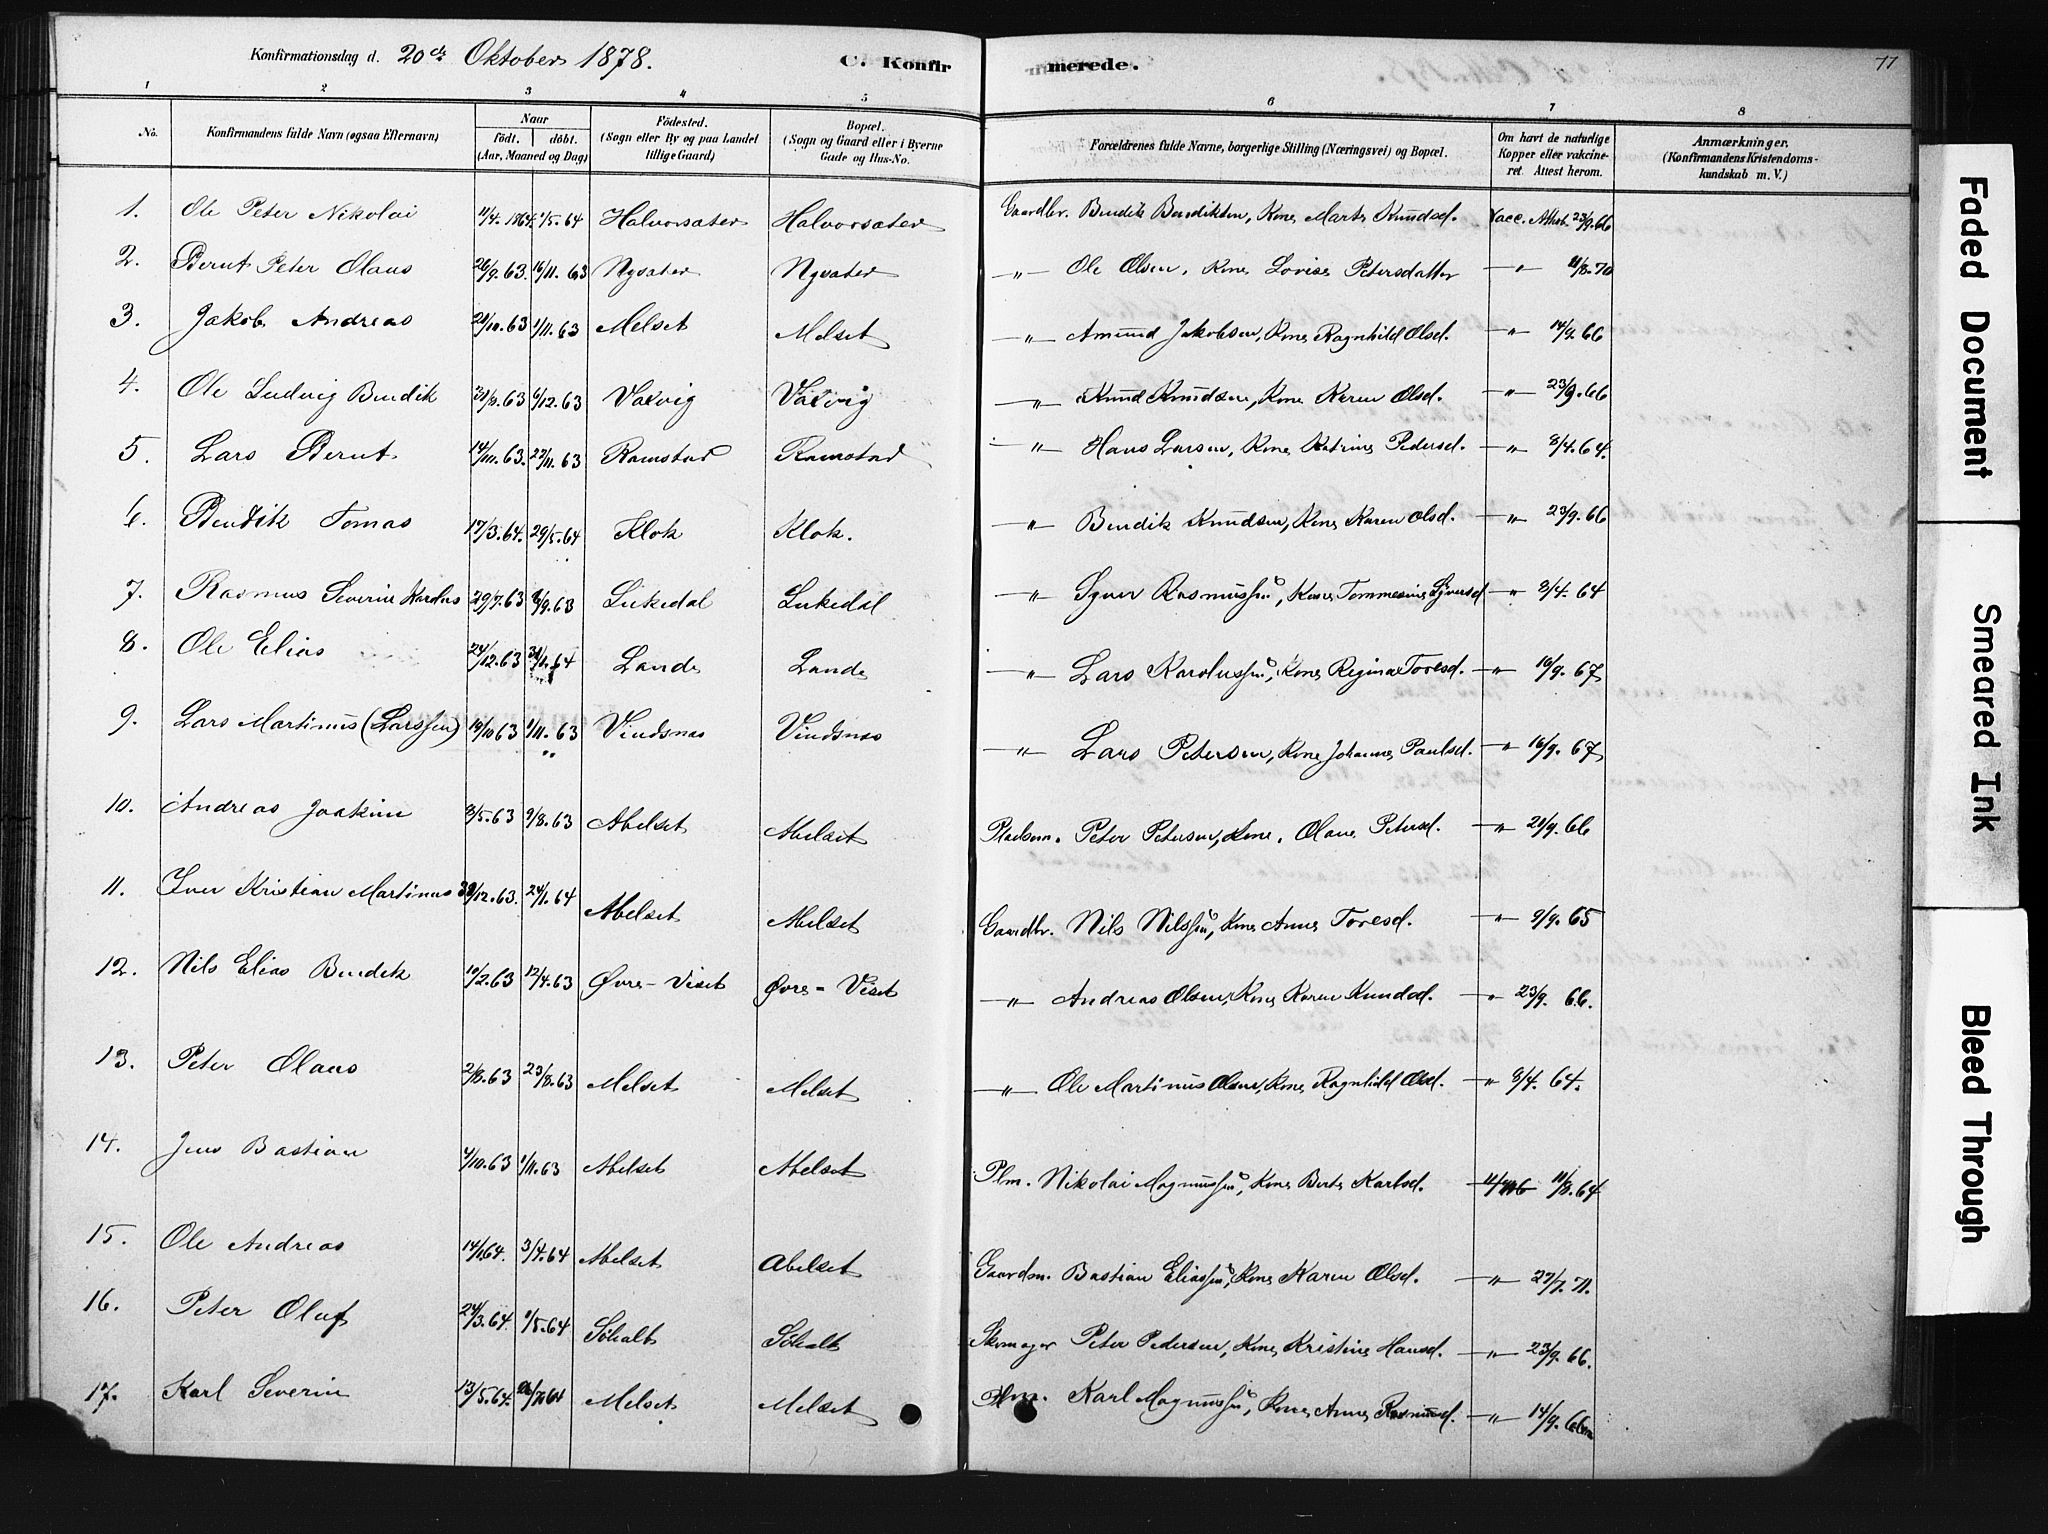 Konfirmationsdag d. 20de Oktober 1878. C. Konfirmerede. 77
1 2 3 4 5 6 7 8
No. Konfirmandens fulde Navn (ogsaa Efternavn) Naar födt. döbt. (Aar, Maaned og Dag) Födested. (Sogn eller By og paa Landet tillige Gaard) Bopæl. (Sogn og Gaard eller i Byerne Gade og Hus-No. Forældrenes fulde Navne, borgerlige Stilling (Næringsvei) og Bopæl. Om havt de naturlige Kopper eller vakcineret. Attest herom. Anmærkninger. (Konfirmandens Kristendomskundskab m. V.)
1. Ole Peter Nikolai 11/4. 1864. 1/5. 64 Halvorsæter Halvorsæter Gaardbr. Bendik Bendiktsen, Kone Marte Knudsd. Vacc. Attest. 23/9. 66
2. Bernt Peter Olaus 26/9. 63. 16/11. 63 Nysæter Nysæter —"— Ole Olsen, Kone Lovise Petersdatter —"— 11/8. 70
3. Jakob Andreas 21/10. 63 1/11. 63 Melset Melset —"— Amund Jakobsen, Kone Ragnhild Olsd. —"— 14/9. 66
4. Ole Ludvig Bendik 31/8. 63 6/12. 63 Vaxvig Vaxvig —"— Knud Knudsen, Kone Karen Olsd. —"— 23/9. 66
5. Lars Bernt 14/11. 63. 22/11. 63 Ramstad Ramstad —"— Hans Larsen, Kone Katrine Pedersd. —"— 8/4. 64.
6. Bendik Tomas 17/3. 64. 29/5. 64 Klok Klok. —"— Bendik Knudsen, Kone Karen Olsd. —"— 23/9. 66
7. Rasmus Severin Karolus 29/7. 63 6/9. 63 Lukedal Lukedal —"— Syver Rasmussen, Kone Tommesine Syversd —"— 8/4. 64
8. Ole Elias 24/12. 63 31/1. 64 Lande Lande —"— Lars Karolussen, Kone Regina Toresd. —"— 16/9. 67
9. Lars Martinus (Larssen) 19/10 63 1/11. 63 Vindsnæs Vindsnæs —"— Lars Petersen, Kone Johanne Paulsd. —"— 16/9. 67
10. Andreas Joakim 3/5. 63 9/8. 63 Abelset Abelset Pladsm. Peter Petersen, Kone, Olane Petersd. —"— 21/9. 66
11. Iver Kristian Martinus 30/12. 63. 24/1. 64 Abelset Abelset Gaardbr. Nils Nilssen, Kone Anne Toresd. —"— 9/9. 65
12. Nils Elias Bendik 10/2. 63 12/4. 63 Øvre-Viset Øvre-Viset —"— Andreas Olsen, Kone Karen Knudsd. —"— 23/9. 66.
13. Peter Olaus 2/8. 63 23/8. 63 Melset Melset —"— Ole Martinus Olsen, Kone Ragnhild Olsd. —"— 8/4. 64.
14. Jens Bastian 4/10. 63 1/11. 63 Abelset Abelset Plm. Nikolai Magnussen, Kone Berte Karlsd. 11/8. 64
15. Ole Andreas 14/1 64. 3/4. 64 Abelset Abelset Gaardm. Bastian Eliassen, Kone Karen Olsd. —"— 27/7. 71.
16. Peter Oluf 24/3. 64. 1/5. 64 Söholt Söholt Skomager Peter Pedersen, Kone Kristine Hansd. —"— 23/9. 66.
17. Karl Severin 13/5. 64. 64 Melset Melset Plm. Karl Magnussen, Kone Anne Rasmusd. —"— 14/9. 66
Faded Document
Smeared Ink
Bleed Through